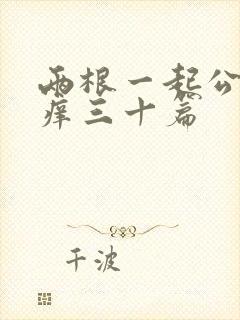 两根一起公
痒三十篇
千波